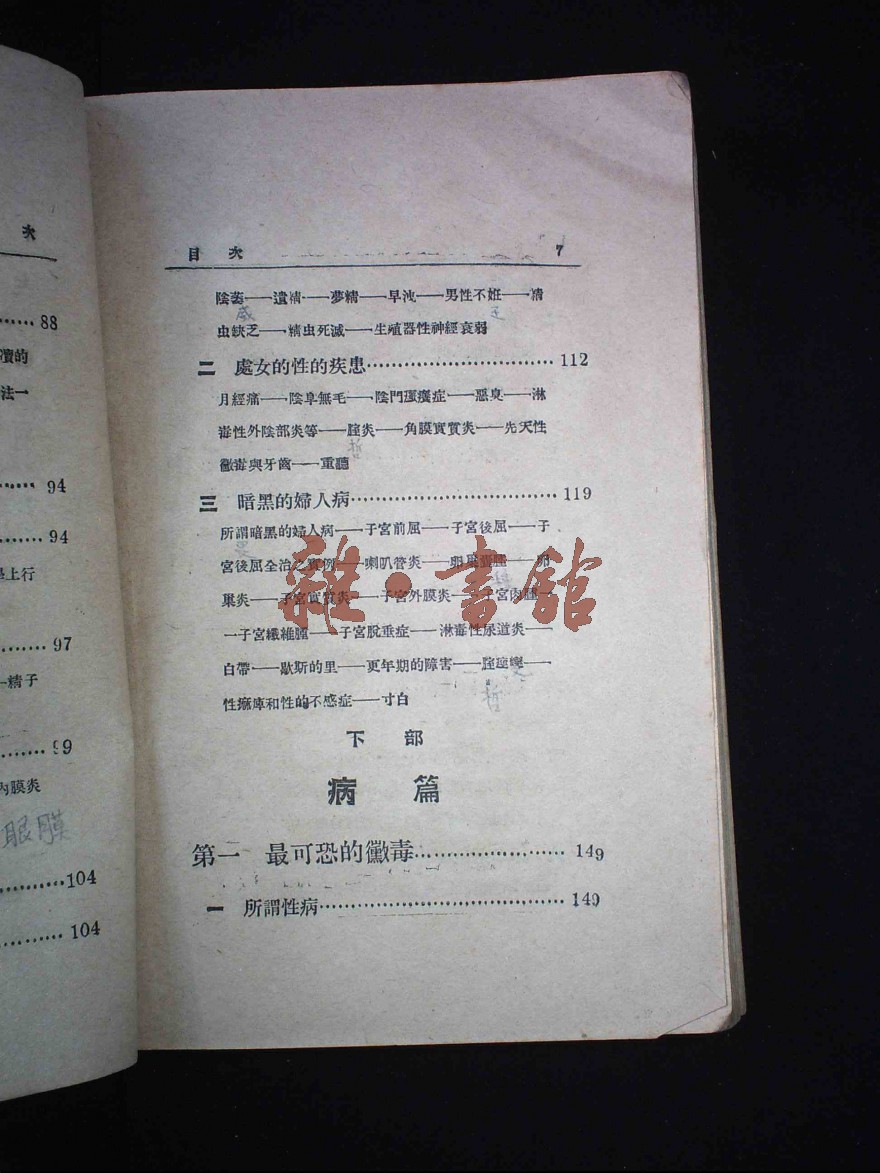 次
88
瀆的
法一
94
94
是上行
97
精子
99
內膜炎
眼膜
104
104
目 次 7
陰萎——遺精——夢精——早洩——男性不姙——精
虫缺乏——精虫死滅——生殖器性神經衰弱
二 處女的性的疾患 112
月經痛——陰阜無毛——陰門瘙癢症——惡臭——淋
毒性外陰部炎等——腟炎——角膜實質炎——先天性
黴毒與牙齒——重聽
三 暗黑的婦人病 119
所謂暗黑的婦人病——子宮前屈——子宮後屈——子
宮後屈全治之實例——喇叭管炎——卵巢囊腫——卵
巢炎——子宮實質炎——子宮外膜炎——子宮肉腫—
—子宮纖維腫——子宮脫垂症——淋毒性尿道炎—
白帶——歇斯的里——更年期的障害——腟痙攣—
性痲庳和性的不感症——寸白
雜·書館
下 部
病 篇
第一 最可恐的黴毒 149
一 所謂性病 149